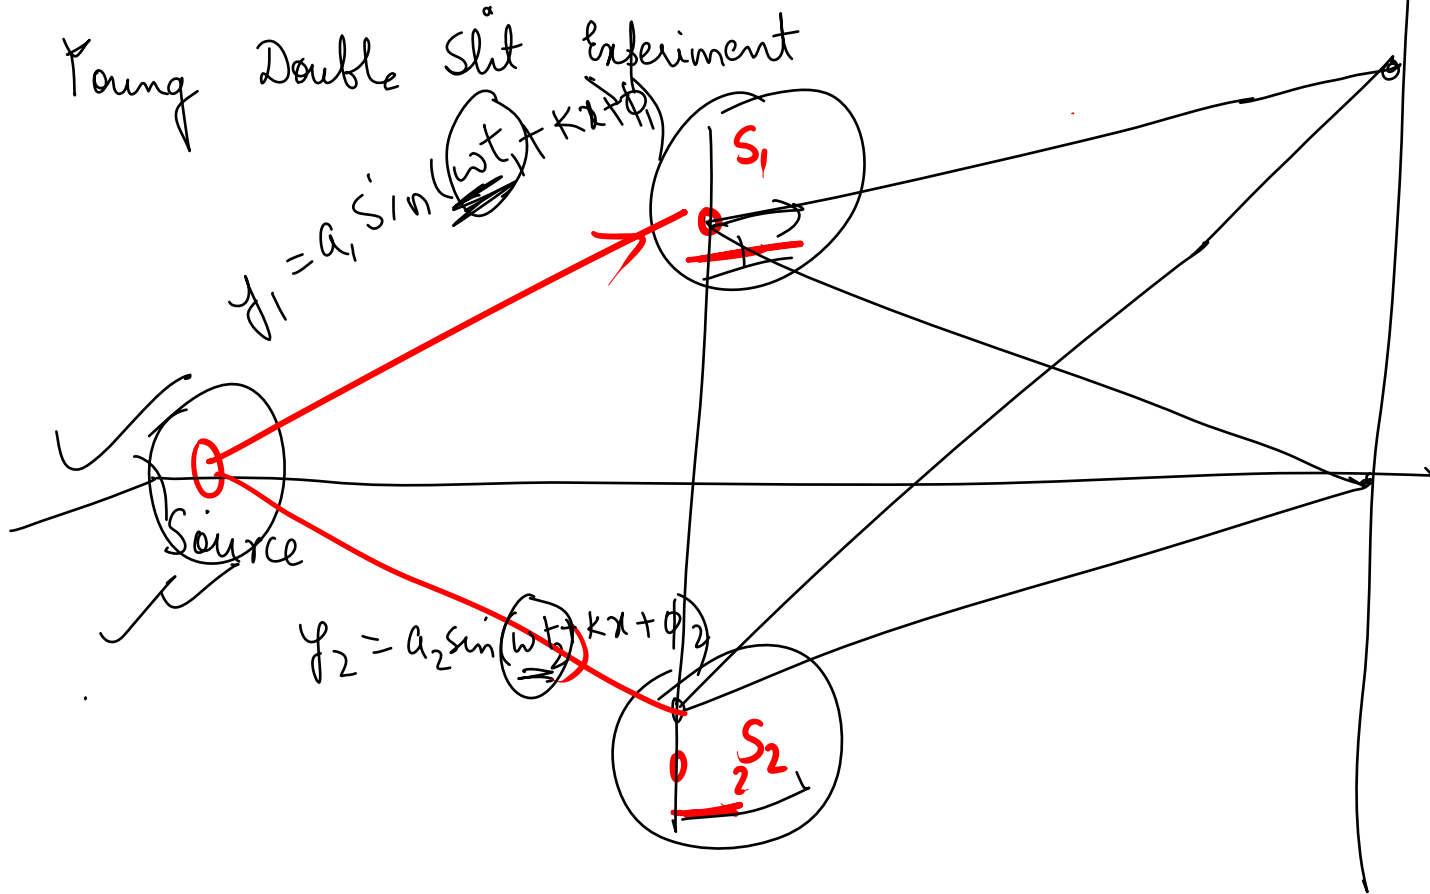 Young Double Slit Experiment
y₁ = a₁ sin(ωt₁ + kx + ϕ₁)
S₁
Source
y₂ = a₂ sin(ωt₂ + kx + ϕ₂)
S₂
2